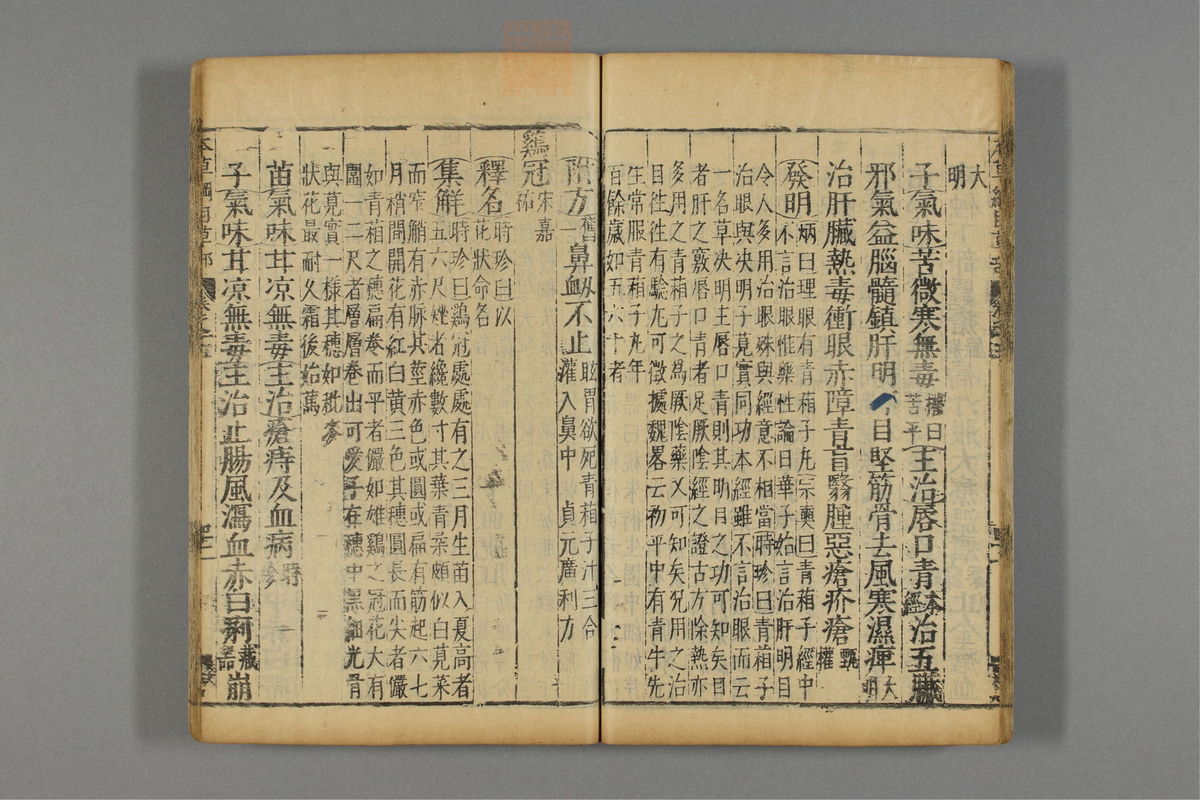 大明
子氣味苦微寒無毒權曰苦平主治唇口青本經治五臟
邪氣益腦髓鎮肝明耳目堅筋骨去風寒濕痺大明
治肝臟熱毒衝眼赤障青盲翳腫惡瘡疥瘡甄權
發明炳曰理眼有青葙子丸宗奭曰青葙子經中
不言治眼惟藥性論日華子始言治肝明目
今人多用治眼殊與經意不相當時珍曰青葙子
治眼與决明子莧實同功本經雖不言治眼而云
一名草决明主唇口青則其明目之功可知矣目
者肝之竅唇口青者足厥陰經之證古方除熱亦
多用之青葙子之爲厥陰藥又可知矣况用之治
目往往有驗尤可徵據魏畧云初平中有青牛先
生常服青葙子丸年
百餘歲如五六十者
附方舊一鼻衄不止眩冒欲死青葙子汁三合
灌入鼻中 貞元廣利方
鷄冠宋嘉祐
釋名時珍曰以
花狀命名
集解時珍曰鷄冠處處有之三月生苗入夏高者
五六尺矬者纔數寸其葉青柔頗似白莧菜
而窄䚡有赤脉其莖赤色或圓或扁有筋起六七
月梢間開花有紅白黃三色其穗圓長而尖者儼
如青葙之穗扁卷而平者儼如雄鷄之冠花大有
圍一二尺者層層卷出可愛子在穗中黑細光滑
與莧實一樣其穗如秕麥
狀花最耐久霜後始蔫
苗氣味甘凉無毒主治瘡痔及血病時珍
子氣味甘凉無毒主治止腸風瀉血赤白痢藏器崩